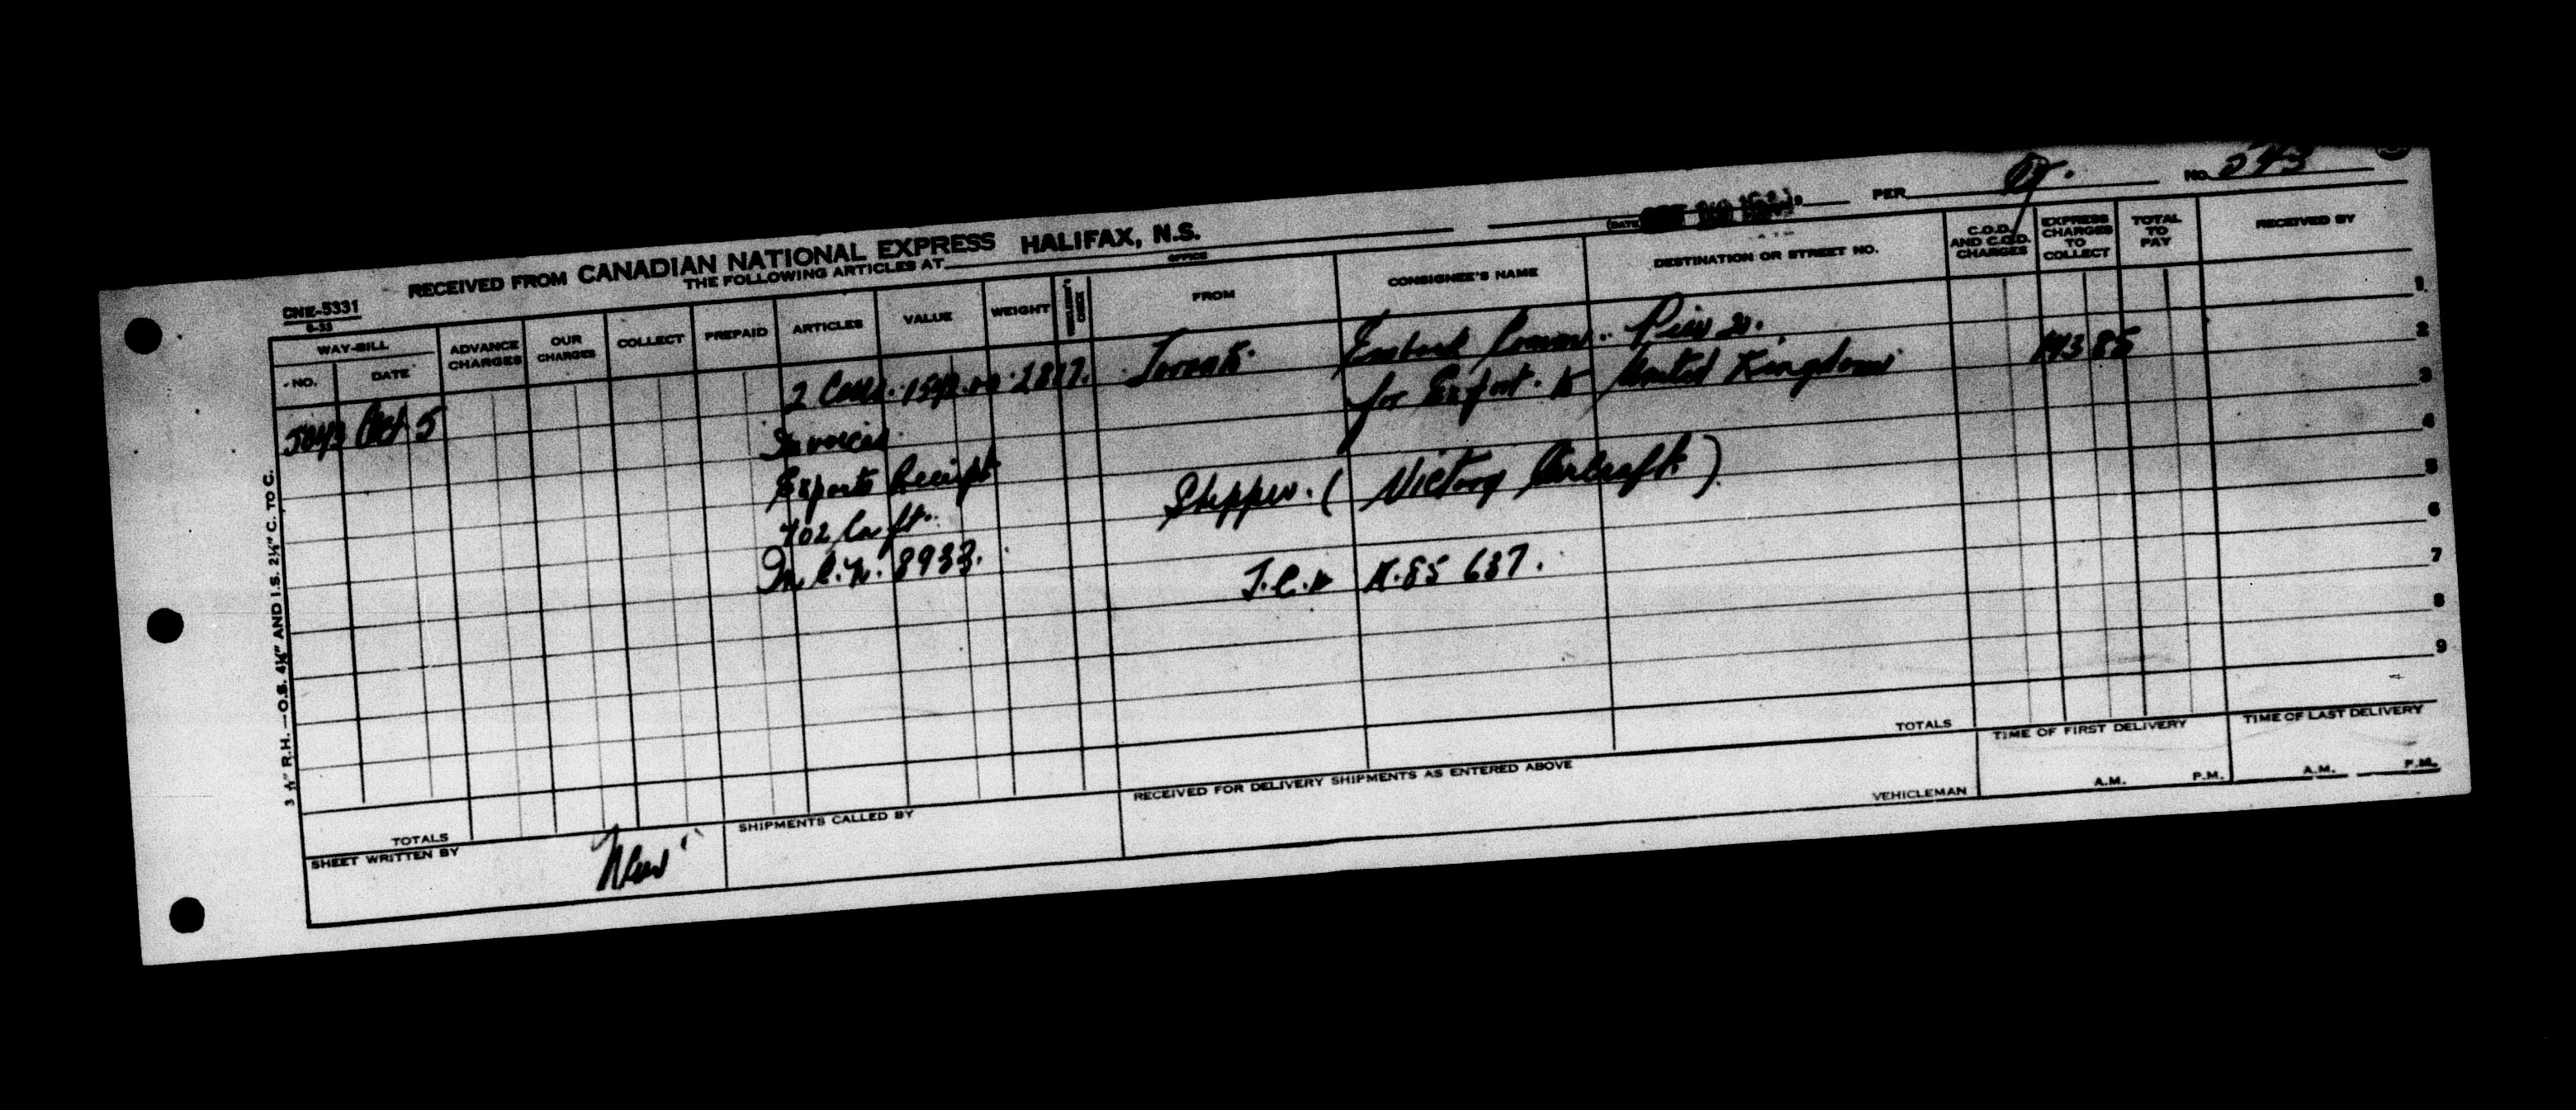 PER No. 273
RECEIVED FROM CANADIAN NATIONAL EXPRESS HALIFAX, N.S. (DATE
THE FOLLOWING ARTICLES AT OFFICE
CNE-5331
6-33
WAY-BILL NO. DATE ADVANCE CHARGES OUR CHARGES COLLECT PREPAID ARTICLES VALUE WEIGHT FROM CONSIGNEE'S NAME DESTINATION OR STREET NO. C.O.D. AND C.O.D. CHARGES EXPRESS CHARGES TO COLLECT TOTAL TO PAY RECEIVED BY
5043 Oct 5 2 Cases. 2817. Toronto. Embark Comm. Pier 21. 143 85 1.
Invoices for Export. to United Kingdom 2
Exports Receipt 3
402 Cu ft. Shipper. ( Victory Aircraft ) 4
M.C.N. 8933. 5
T.C. K.85 637. 6
7
8
9
3 ½" R.H.—O.S. 4¼" AND I.S. 2¼" C. TO C.
TOTALS TOTALS
SHEET WRITTEN BY SHIPMENTS CALLED BY RECEIVED FOR DELIVERY SHIPMENTS AS ENTERED ABOVE VEHICLEMAN TIME OF FIRST DELIVERY A.M. P.M. TIME OF LAST DELIVERY A.M. P.M.